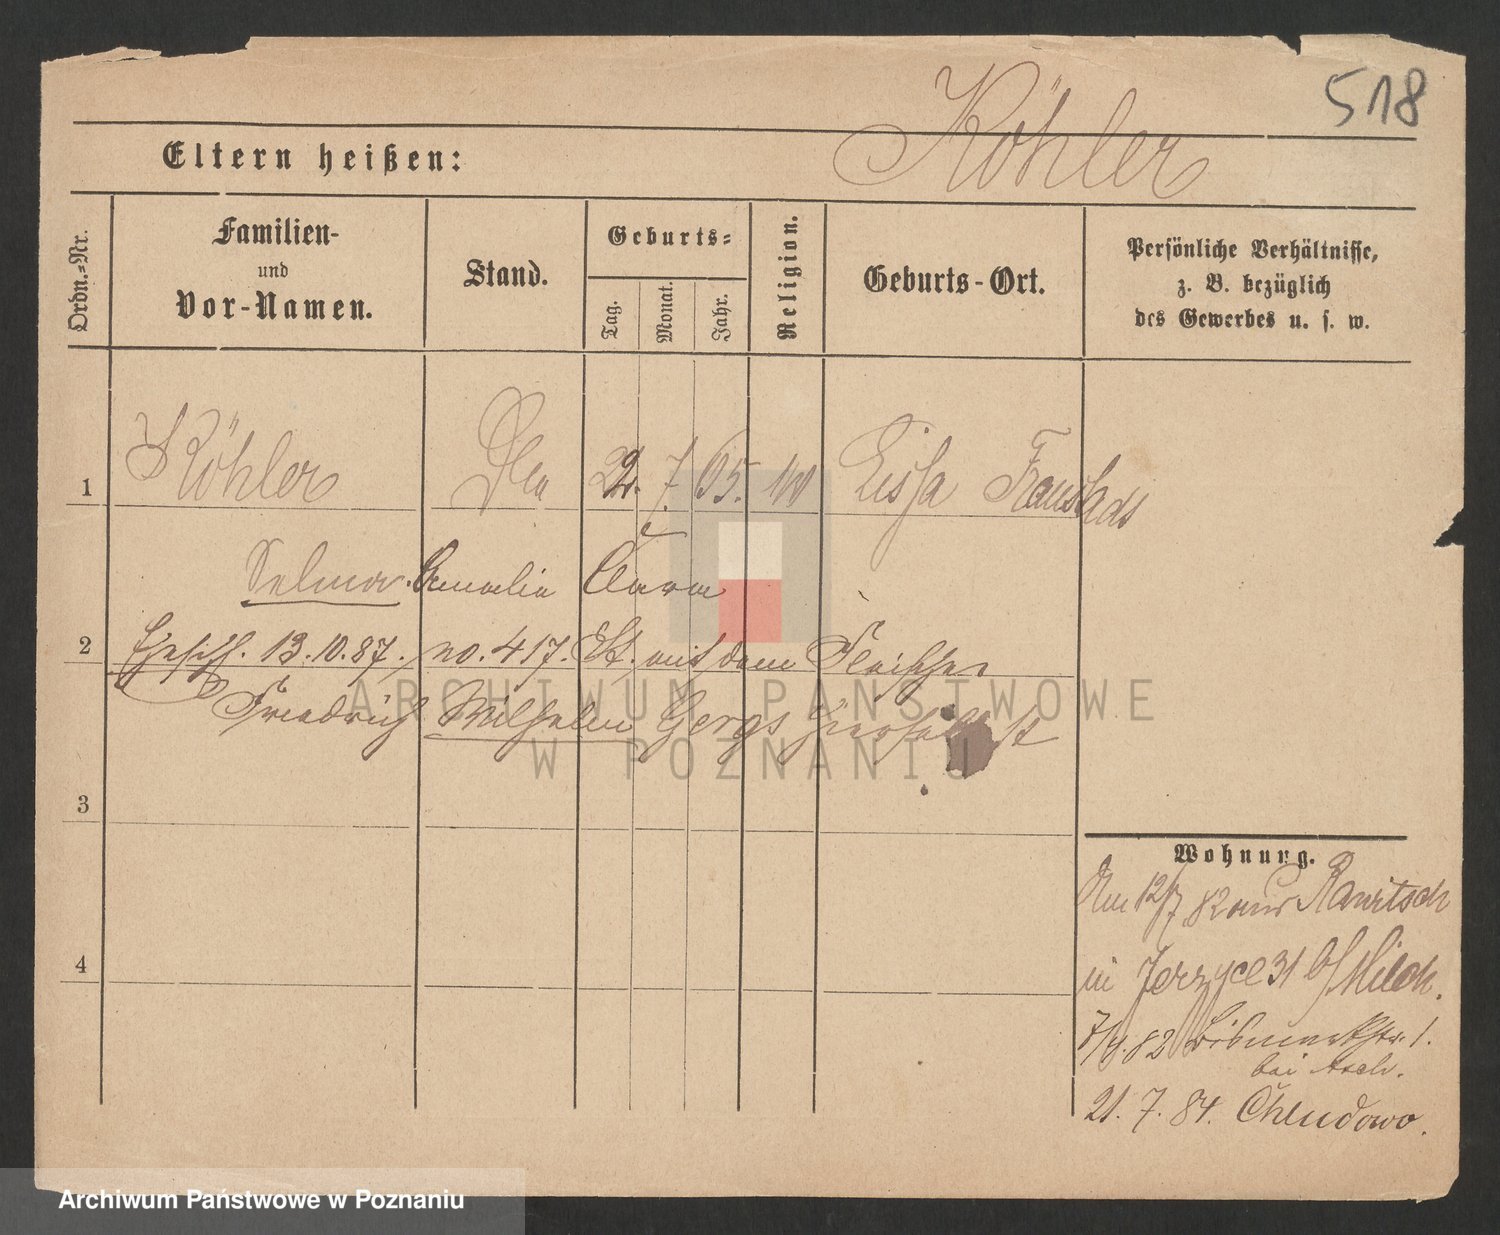 518
Köhler
Eltern heißen:
Ordn.=Nr.
Familien-
und
Vor-Namen.
Stand.
Geburts=
Tag.
Monat.
Jahr.
Religion.
Geburts-Ort.
Persönliche Verhältnisse,
z. B. bezüglich
des Gewerbes u. s. w.
1 Köhler 22. 7. 65. Lissa Fraustadt
Selma Amalie Clara
2 Ehesch. 13.10.87. no. 417. St. mit dem Fleischer
Friedrich Wilhelm
3
4
Wohnung.
Am 12/7 82 aus Rawitsch
in Jerzyce 31 b/ Milch.
7/9. 82 Bismarkstr. 1.
bei Asch.
21. 7. 84. Chludowo.
ARCHIWUM PAŃSTWOWE
W POZNANIU
Archiwum Państwowe w Poznaniu